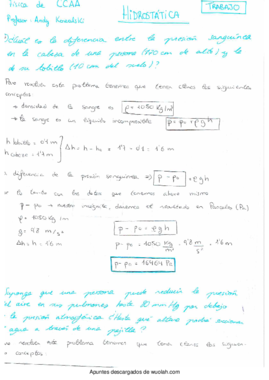 Física de CCAA
TRABAJO
Profesor: Andy
HIDROSTÁTICA
¿Cuál es la diferencia entre la presión sanguínea
en la cabeza de una persona (170 cm de alto) y la
de su tobillo (10 cm del suelo)?
Para resolver este problema tenemos que tener claros los siguientes
conceptos:
→ densidad de la sangre es ρ = 1050 Kg/m³
→ la sangre es un líquido incompresible p = p₀ + ρgh
h tobillo = 0'1 m
h cabeza = 1'7 m
Δh = h - h₀ = 1'7 - 0'1 = 1'6 m
diferencia de la presión sanguínea ⇒ p - p₀ = ρgh
con los datos que tenemos ahora mismo
p - p₀ → nuestra incógnita, daremos el resultado en Pascales (Pa)
ρ = 1050 Kg/m
g = 9'8 m/s²
Δh = 1'6 m
p - p₀ = ρgh
p - p₀ = 1050 Kg/m³ · 9'8 m/s² · 1'6 m
p - p₀ = 16464 Pa
Suponga que una persona puede reducir la presión
el aire en sus pulmones hasta 80 mm Hg por debajo
la presión atmosférica ¿Hasta qué altura podrá succionar
agua a través de una pajilla?
resolver este problema tenemos que tener claros los siguien
conceptos
Apuntes descargados de wuolah.com